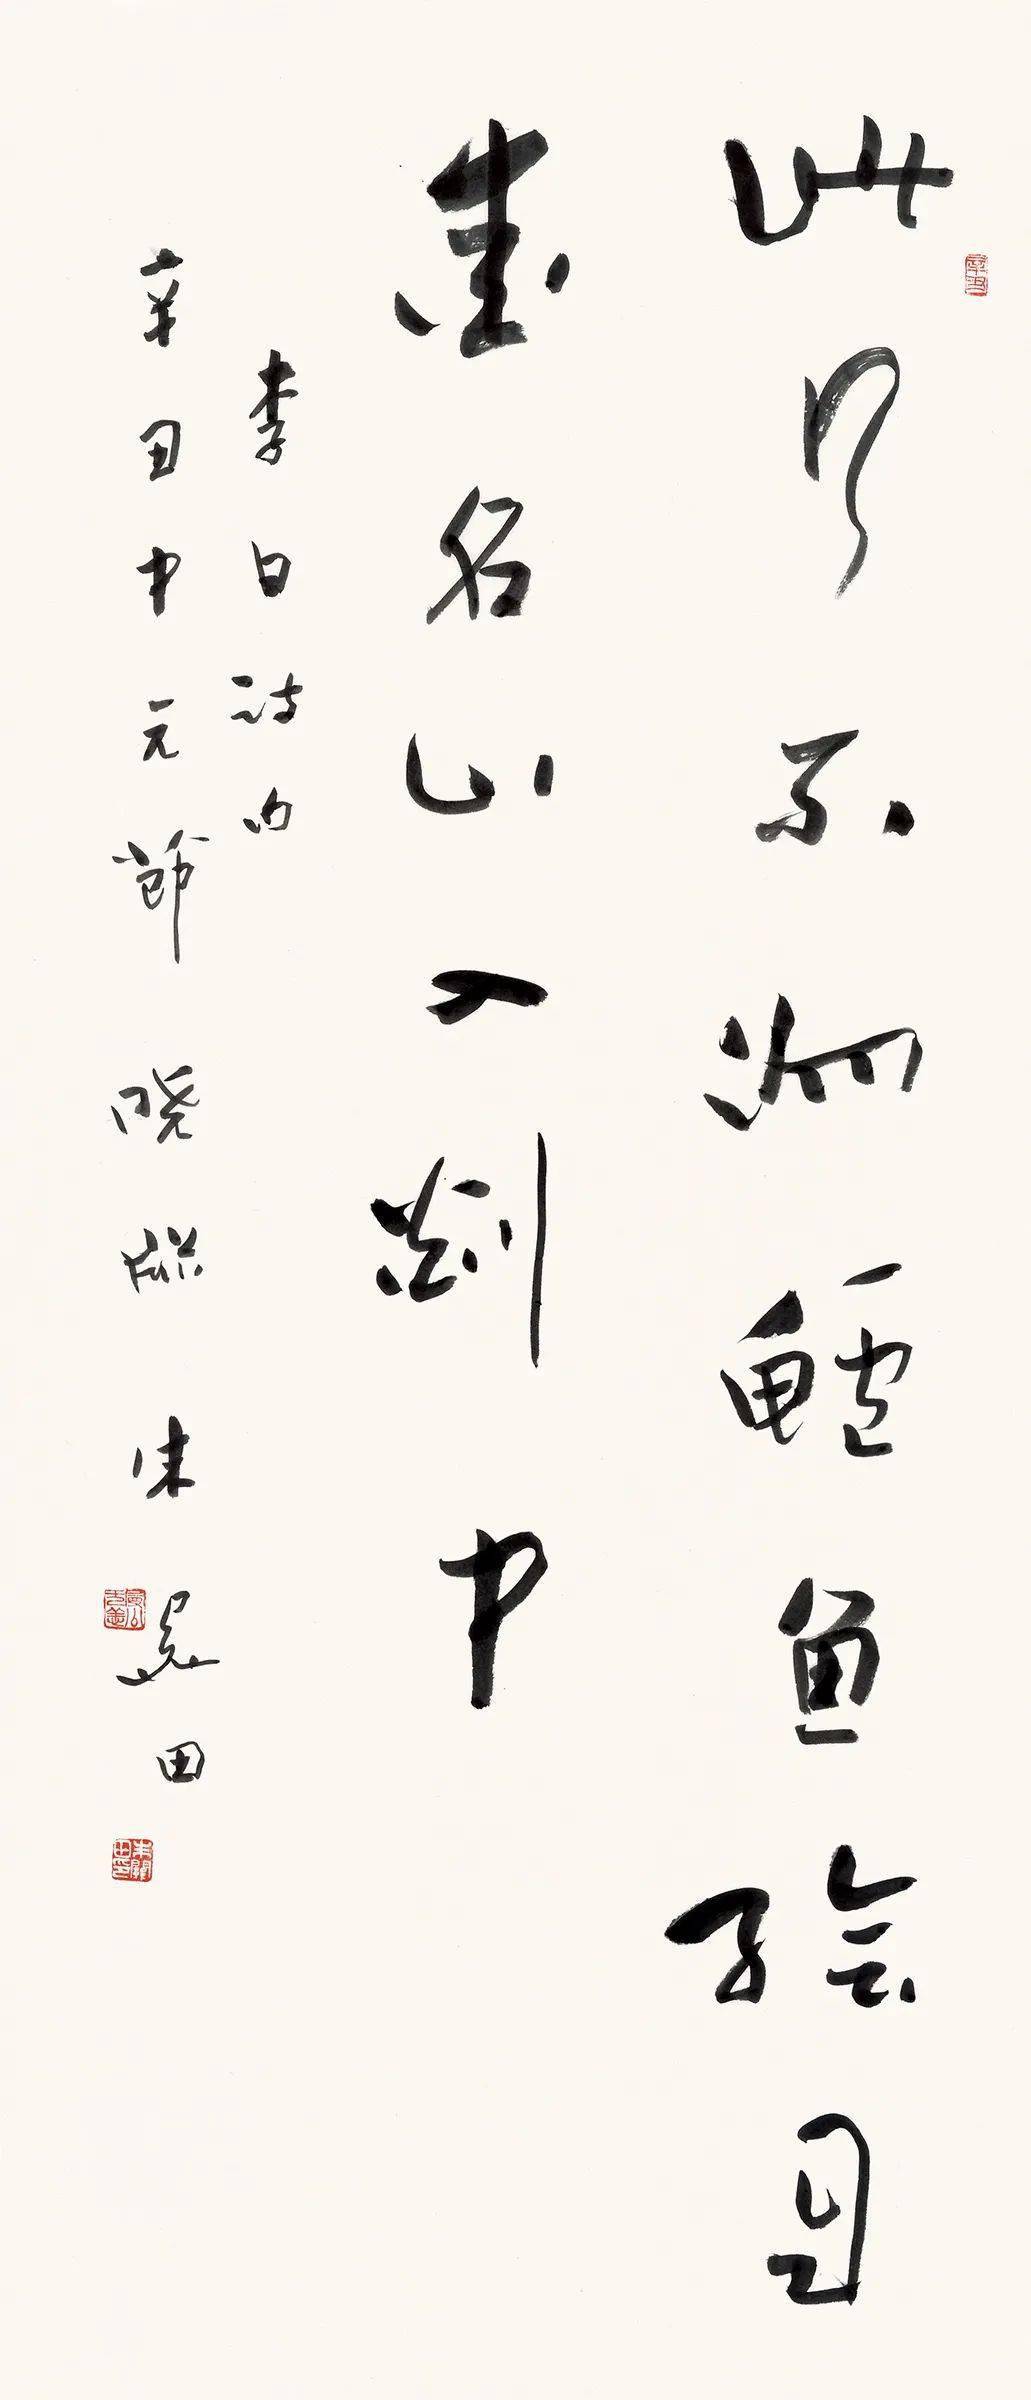 此行不為鱸魚鱠自
愛名山入剡中
李白詩句
辛丑中元節 曉 朱關田